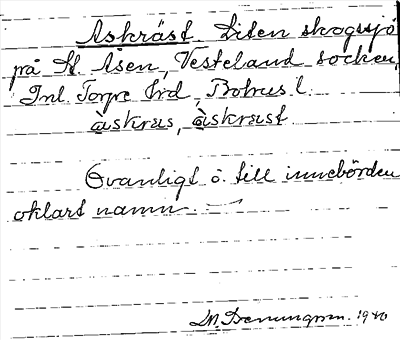 Askräst. Liten skogssjö
på St. Åsen, Vesteland socken,
Inl. Torpe hrd, Bohus l.
àskras, àskrast
Ovanligt o. till innebörden
oklart namn
1940